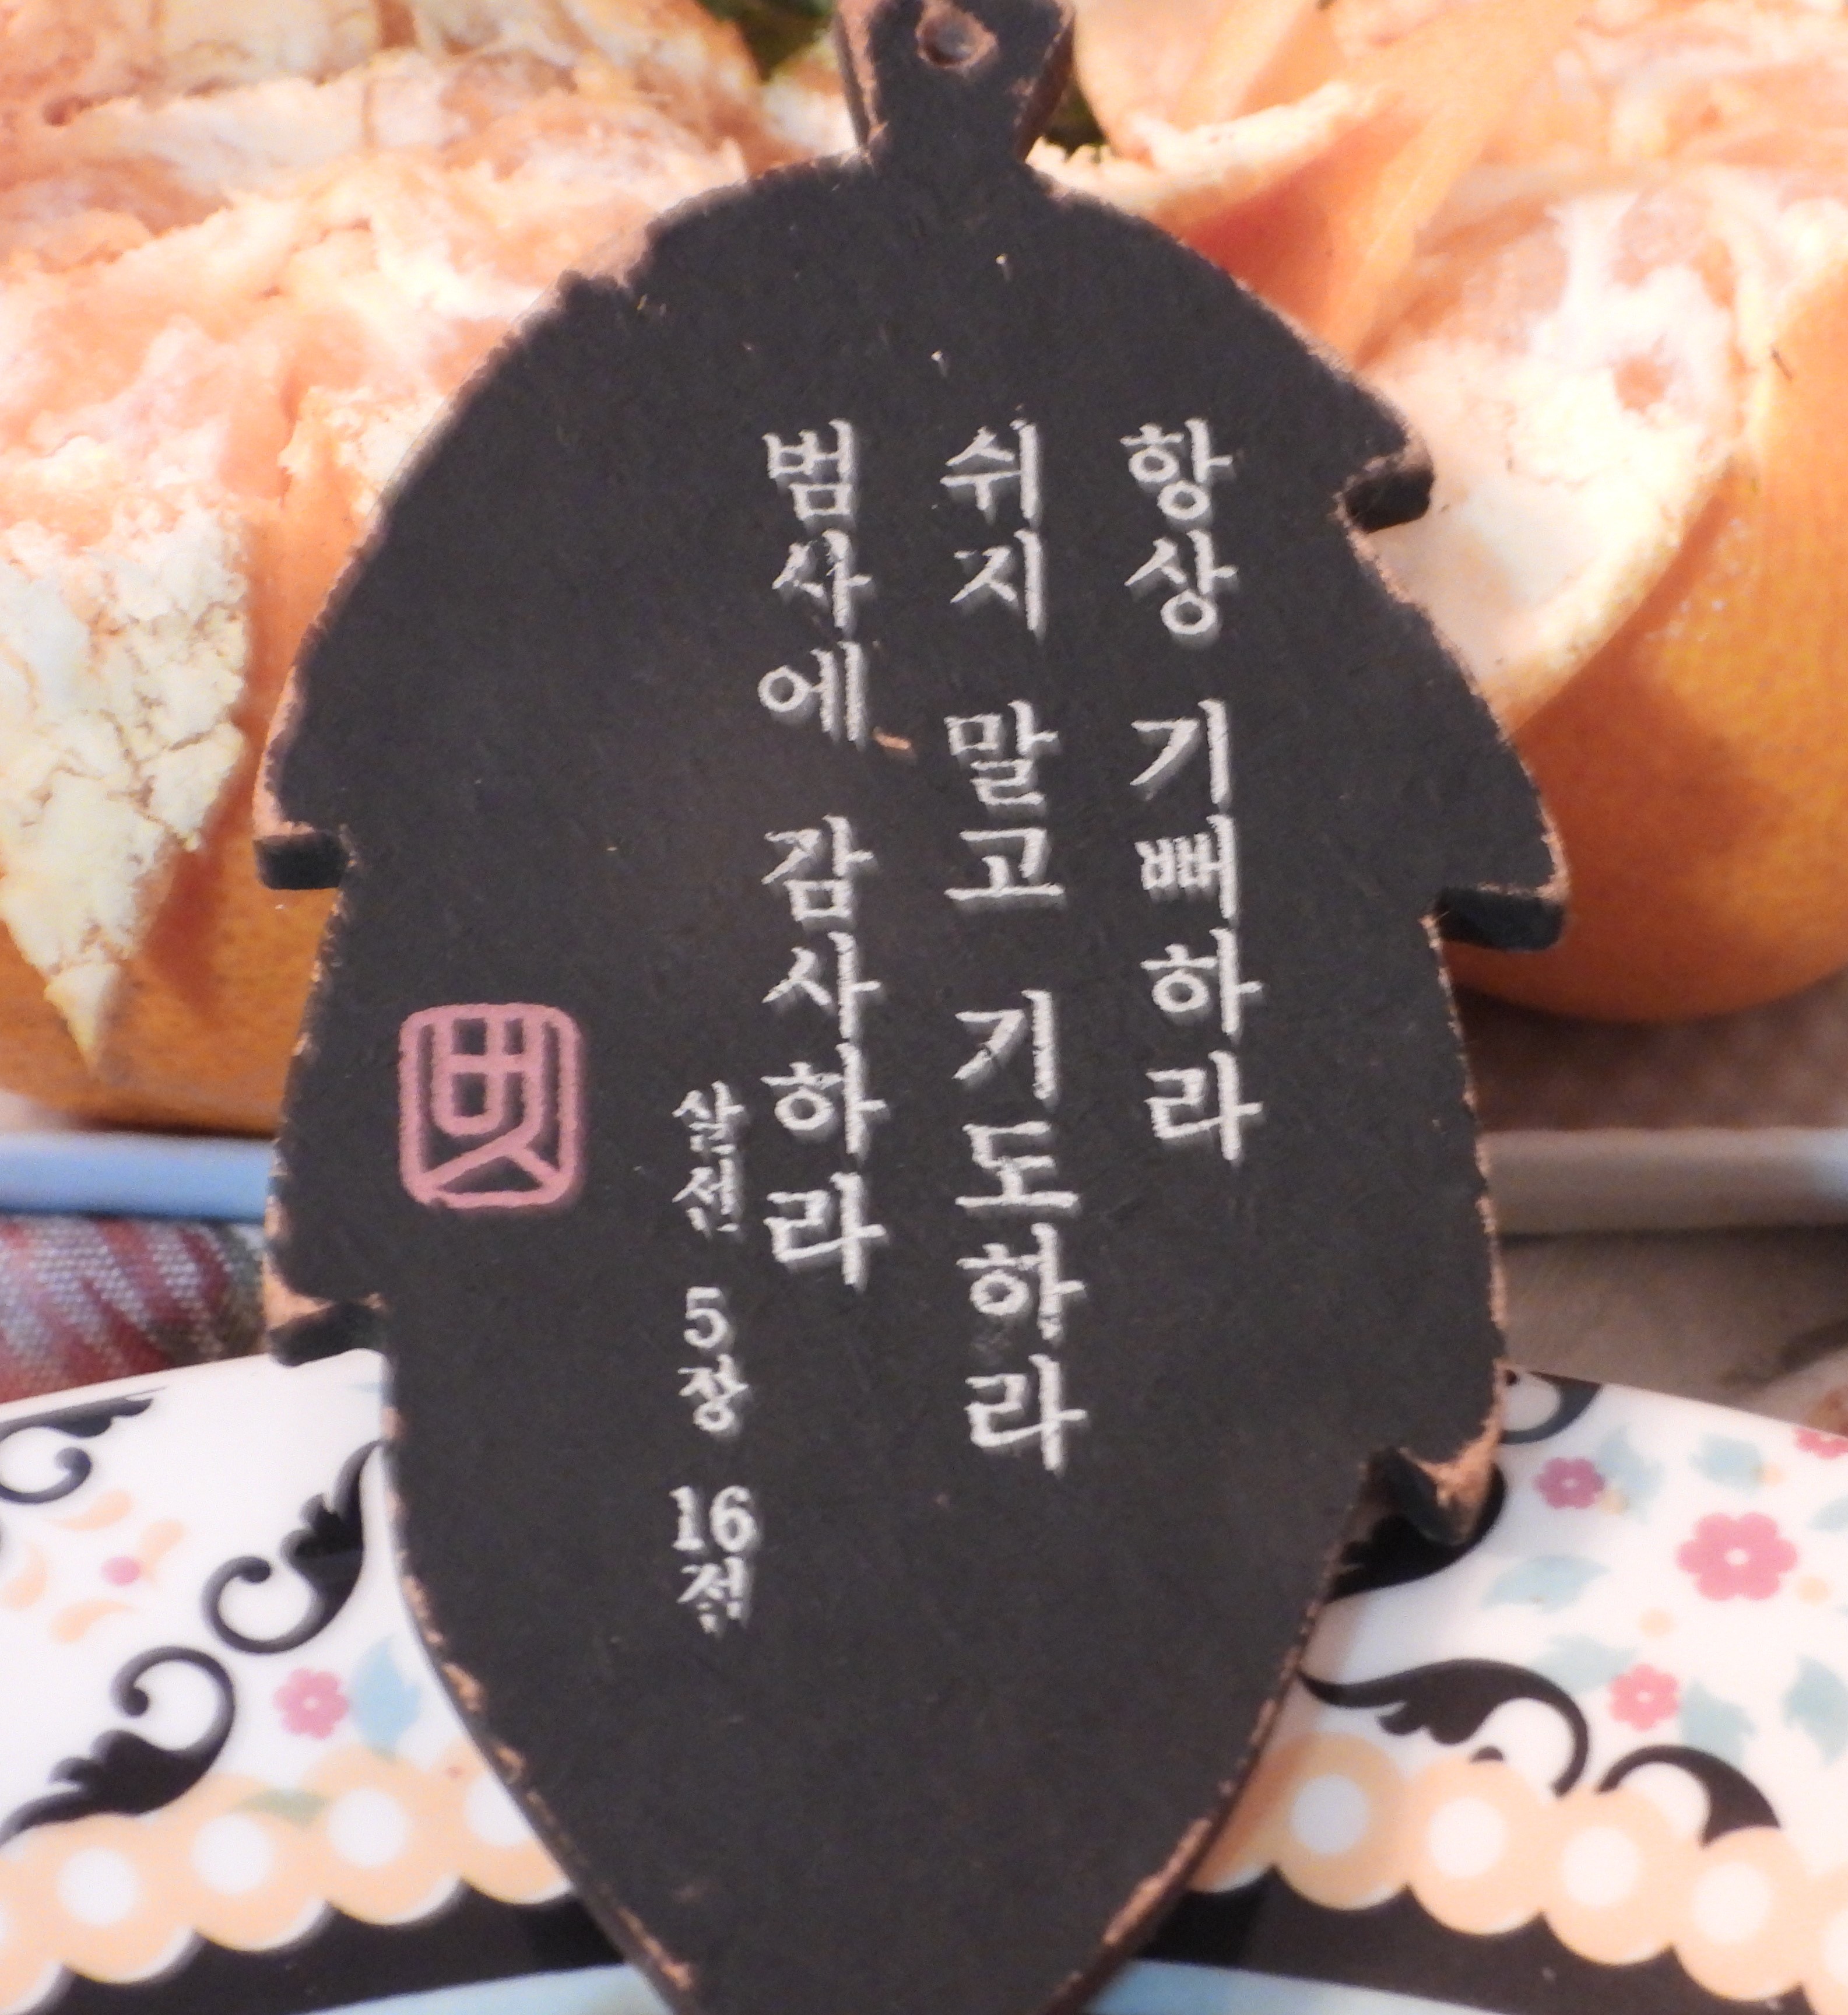 항상 기뻐하라
쉬지 말고 기도하라
범사에 감사하라
살전 5장 16절
벗